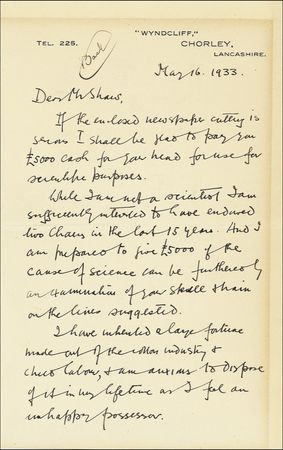 "WYNDCLIFF,"
TEL. 225.
CHORLEY,
LANCASHIRE.
May 16. 1933.
Dear Mr Shaw,
If the enclosed newspaper cutting is
serious I shall be glad to pay you
£5000 cash for your head for use for
scientific purposes.
While I am not a scientist I am
sufficiently interested to have endowed
two Chairs in the last 15 years. And I
am prepared to give £5000 if the
cause of science can be furthered by
an examination of your skull & brain
on the lines suggested.
I have inherited a large fortune
made out of the cotton industry &
child labour, & am anxious to dispose
of it in my lifetime as I feel an
unhappy possessor.